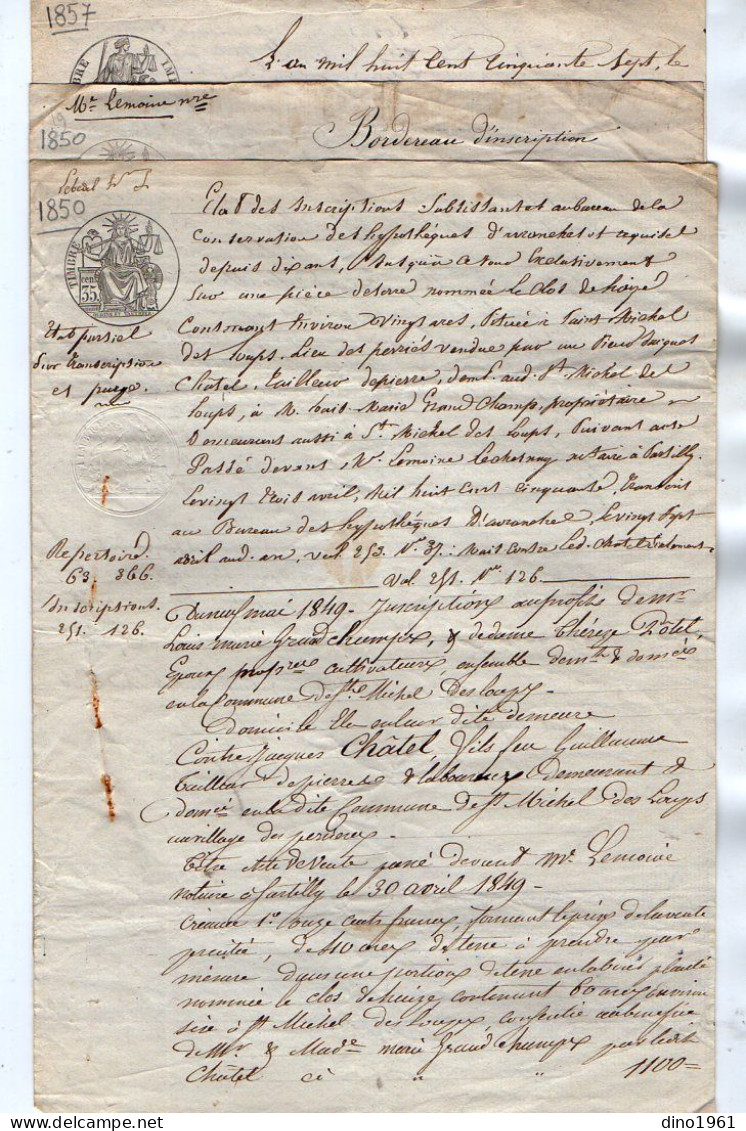 1857
L'an mil huit cent cinquante sept, le
Mr. Lemoine nre
1850
Bordereau d'inscription
1850
TIMBRE
35
Etat des Inscriptions Subsistantes au bureau de la
Conservation des hypothèques d'avranches et requises
depuis dix ans, Exclusivement
Sur une pièce de terre nommée le clos de
Contenant Environ vingt ares, Située à Saint Michel
des loups, lieu des vendue par
Etat partiel
Sur transcription
et purge.
Châtel, Tailleur de pierre, dem. aud. St. Michel des
Loups, à M. Louis Marie Grand Champ, propriétaire
Demeurant aussi à St. Michel des Loups, Suivant acte
Passé devant Me. Lemoine notaire à Sartilly
le vingt trois avril, Mil huit cent cinquante, Transcrit
au Bureau des hypothèques d'avranches, le vingt sept
avril aud. an, vol. 253. No. 37. Mais contre led. Châtel Seulement
Repertoire
63. 366.
Vol. 251. No. 126.
Inscriptions.
251. 126.
Du neuf mai 1849. Inscription au profit de Mr
Louis marie Grandchamps, & de dame Thérèse Potel,
Epoux propres cultivateurs, ensemble demts & domés
en la Commune de St Michel Des loups.
Domicile Elu en leur dite demeure
Contre Jacques Châtel, fils feu Guillaume
tailleur de pierres & laboureur Demeurant &
domié en la dite Commune de St Michel Des Loups
au village des
Titre Acte de Vente passé devant Mr. Lemoine
notaire à Sartilly le 30 avril 1849.
Creance 1° onze cents francs, formant le prix de la vente
précitée, de 40 ares de terre à prendre par
mesure dans une portion de terre en labour planté
nommée le clos contenant 60 ares environ
sise à St Michel des Loups, consentie au bénéfice
de Mr & Made marie Grandchamps par ledit
Châtel ci " " 1100=
dino1961